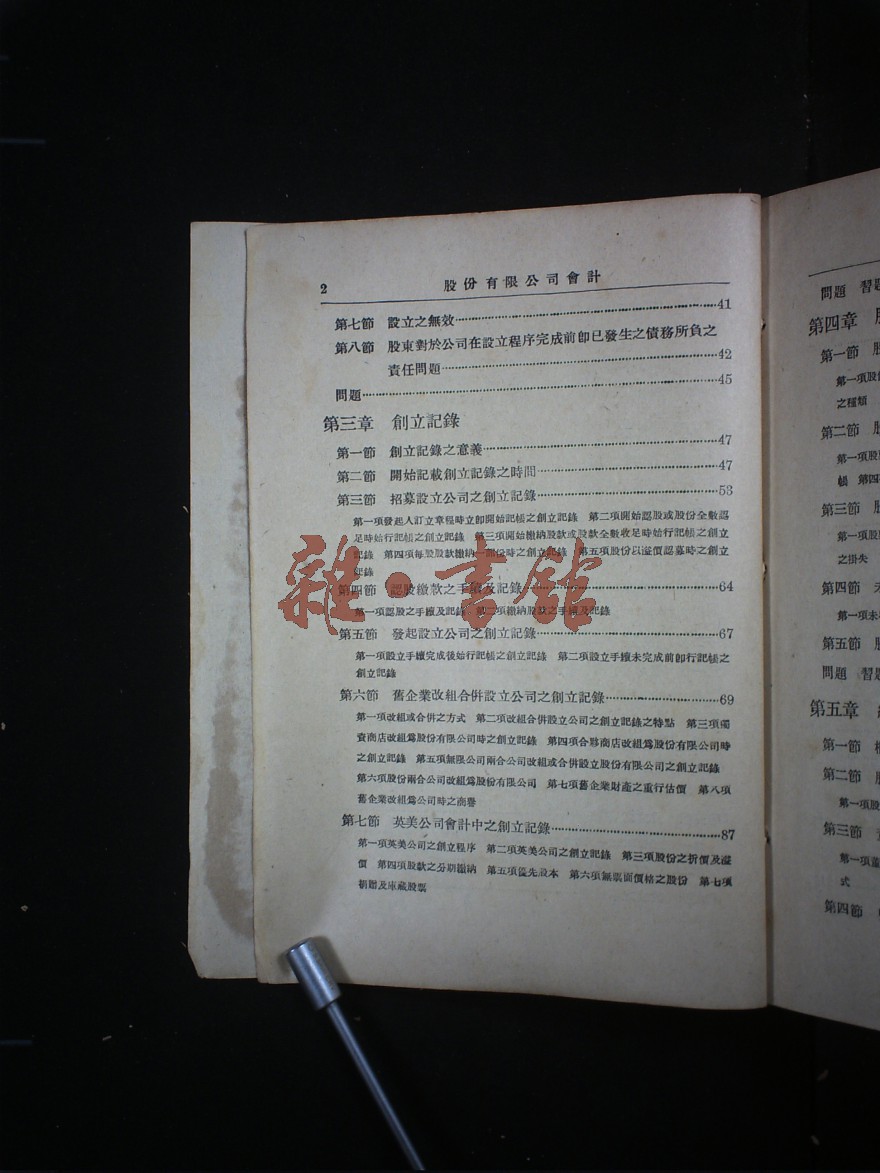 2 股份有限公司會計
第七節 設立之無效……41
第八節 股東對於公司在設立程序完成前卽已發生之債務所負之
責任問題……42
問題……45
第三章 創立記錄
第一節 創立記錄之意義……47
第二節 開始記載創立記錄之時間……47
第三節 招募設立公司之創立記錄……53
第一項發起人訂立章程時立卽開始記帳之創立記錄 第二項開始認股或股份全數認
足時始行記帳之創立記錄 第三項開始繳納股款或股款全數收足時始行記帳之創立
記錄 第四項每股股款繳納一部份時之創立記錄 第五項股份以溢價認募時之創立
記錄
第四節 認股繳款之手續及記錄……64
第一項認股之手續及記錄 第二項繳納股款之手續及記錄
第五節 發起設立公司之創立記錄……67
第一項設立手續完成後始行記帳之創立記錄 第二項設立手續未完成前卽行記帳之
創立記錄
第六節 舊企業改組合併設立公司之創立記錄……69
第一項改組或合併之方式 第二項改組合併設立公司之創立記錄之特點 第三項獨
資商店改組爲股份有限公司時之創立記錄 第四項合夥商店改組爲股份有限公司時
之創立記錄 第五項無限公司兩合公司改組或合併設立股份有限公司之創立記錄
第六項股份兩合公司改組爲股份有限公司 第七項舊企業財產之重行估價 第八項
舊企業改組爲公司時之商譽
第七節 英美公司會計中之創立記錄……87
第一項英美公司之創立程序 第二項英美公司之創立記錄 第三項股份之折價及溢
價 第四項股款之分期繳納 第五項優先股本 第六項無票面價格之股份 第七項
捐贈及庫藏股票
雜·書館
問題 習題
第四章
第一節
第一項股份
之種類
第二節
第一項股
帳 第四
第三節
第一項股
之掛失
第四節
第一項未
第五節
問題 習題
第五章
第一節
第二節
第一項股
第三節
第一項
式
第四節